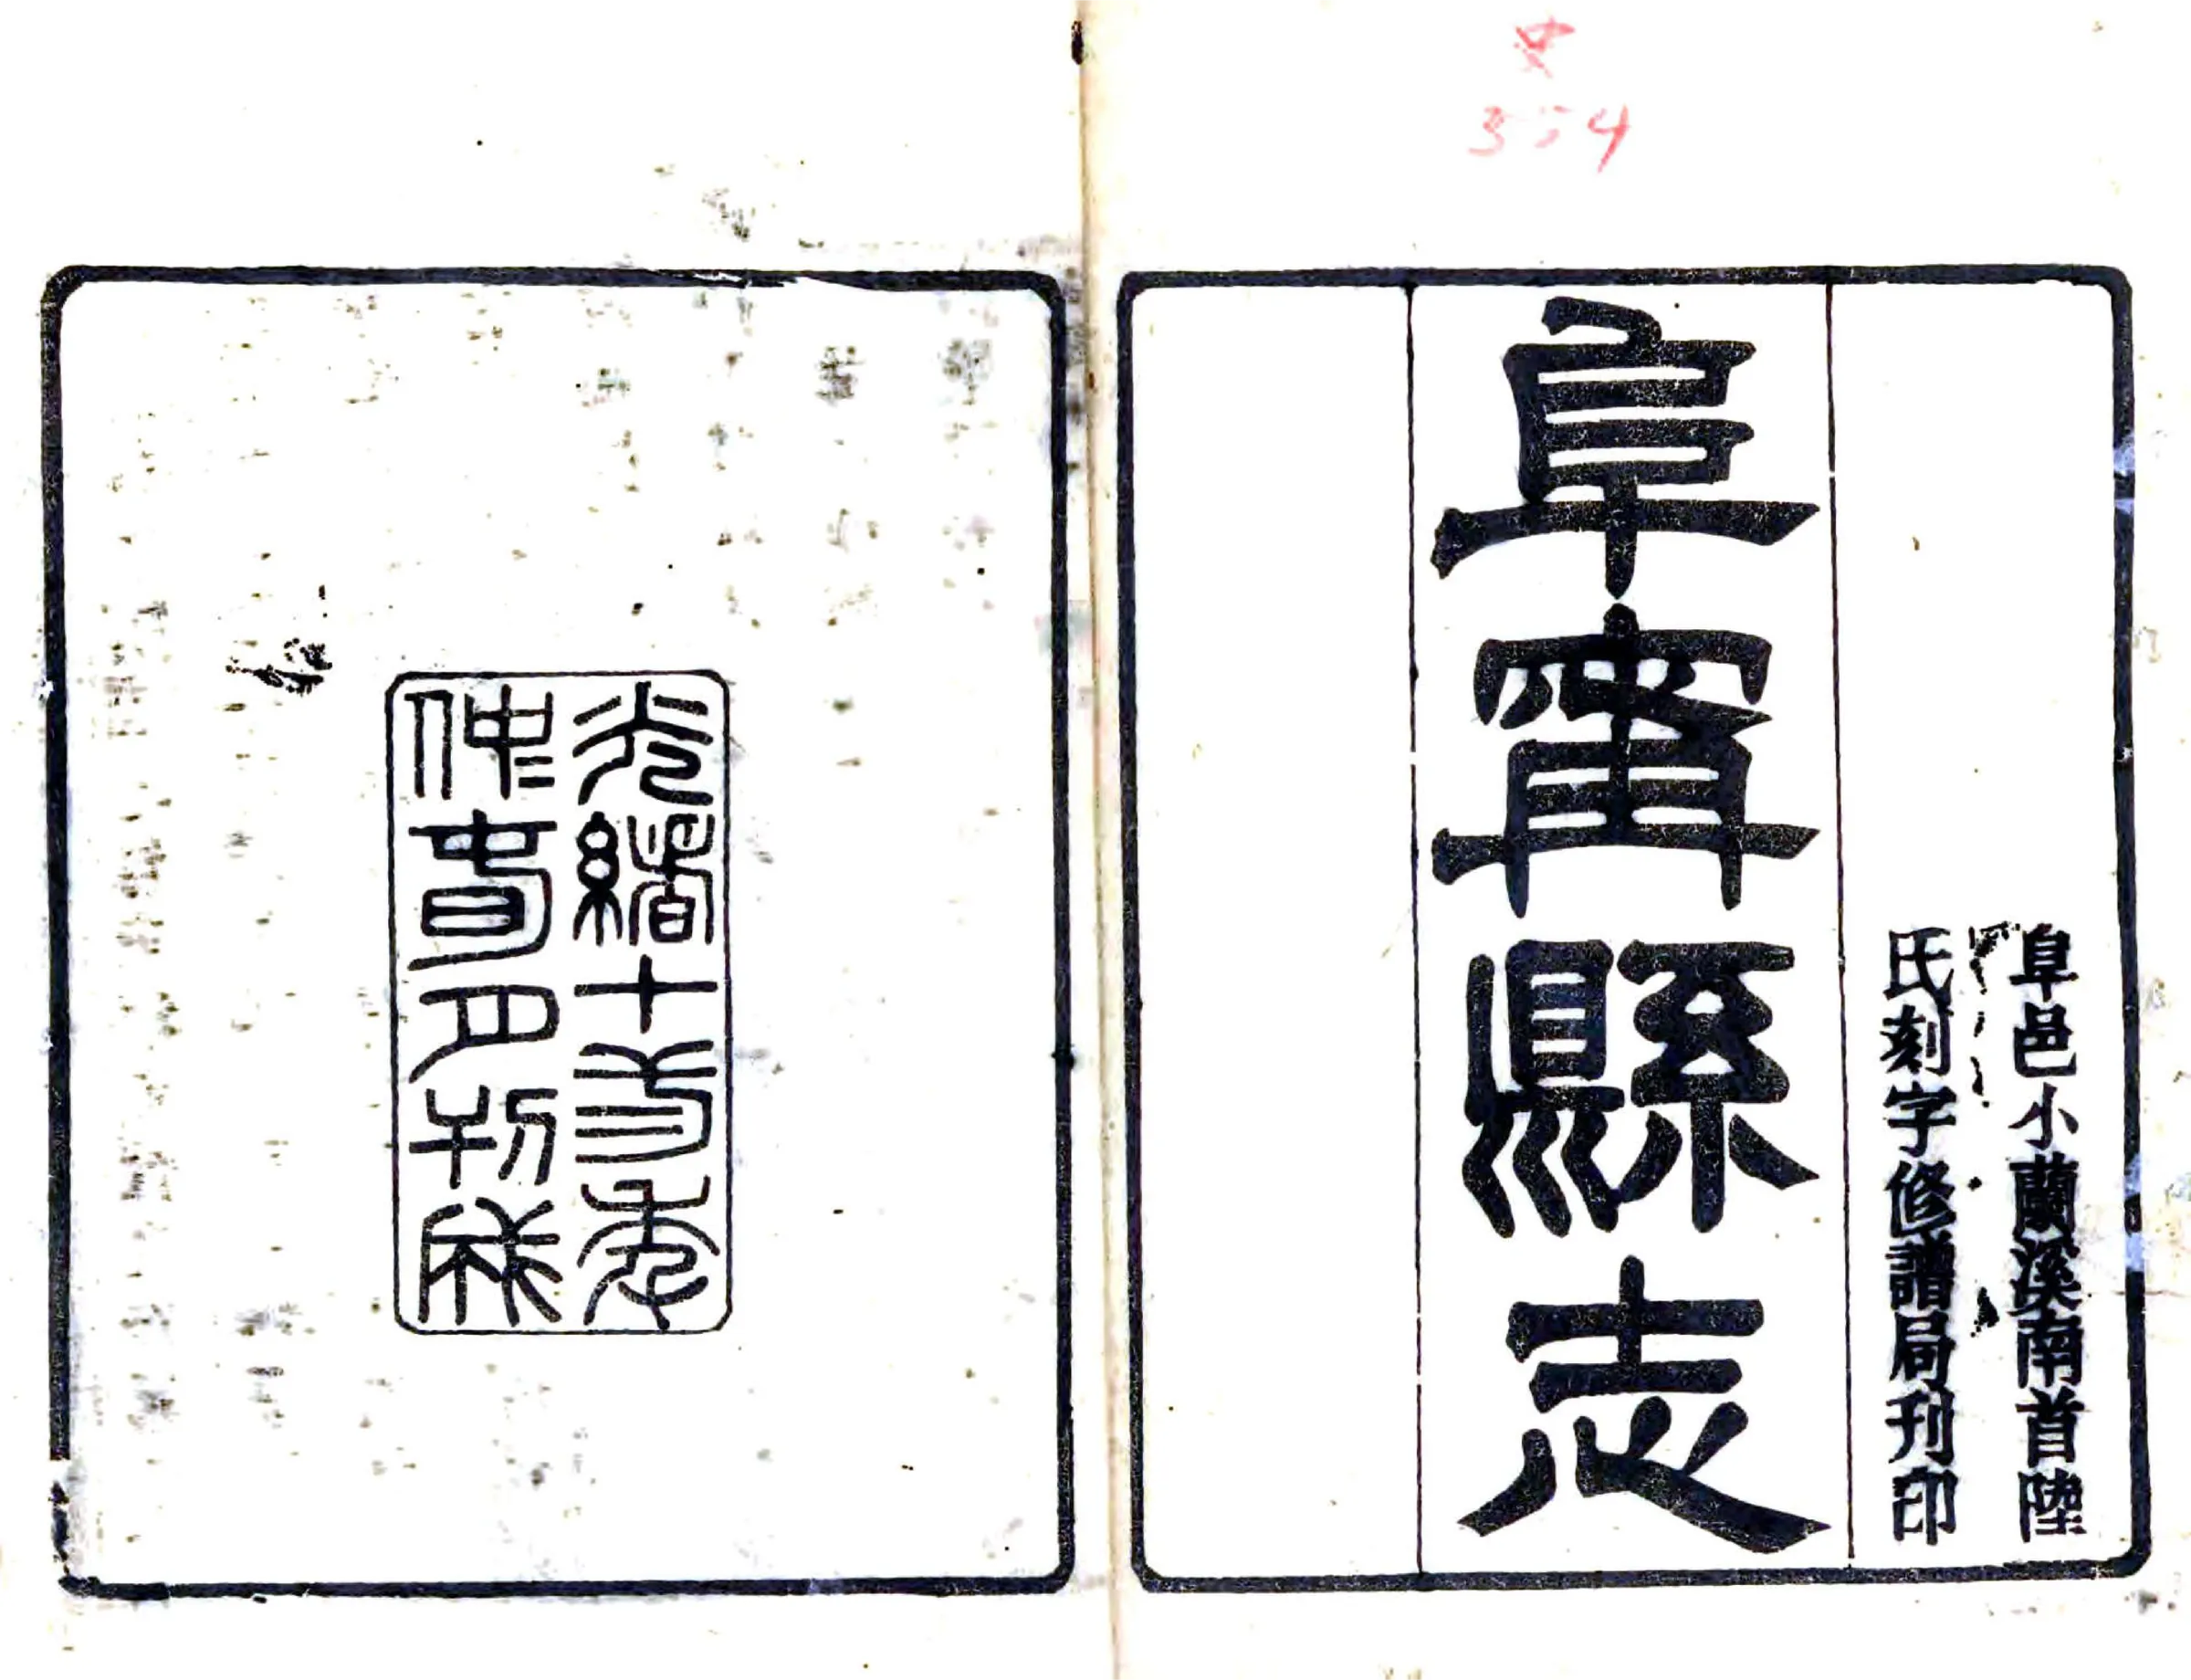 史
354
阜邑小蘭溪南首陸
氏刻字修譜局刊印
阜甯縣志
光緒十弍年
仲春月刊成